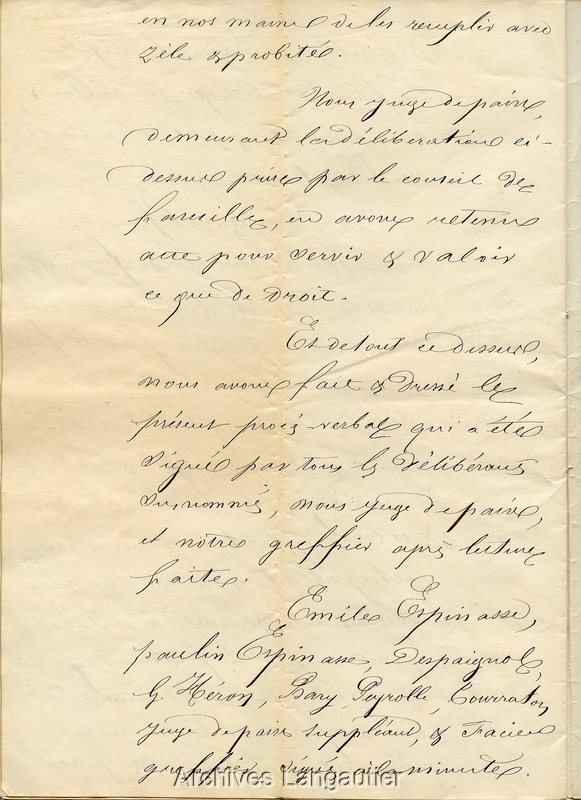 en nos mains de les remplir avec
zèle & probité.
Nous juge de paix,
demeurant les délibérations ci-
dessus prises par le conseil de
famille, en avons retenu
acte pour servir & valoir
ce que de droit.
Et de tout ce dessus,
nous avons fait & dressé le
présent procès-verbal qui a été
signé par tous les délibérants
susnommés, nous juge de paix,
et notre greffier après lecture
faite.
Emile Espinasse,
paulin Espinasse, Despaignol,
G. Héron, Bary, Peyrolle, Courraton,
juge de paix suppléant, &
greffier, signé à la minute.
Archives Langautier